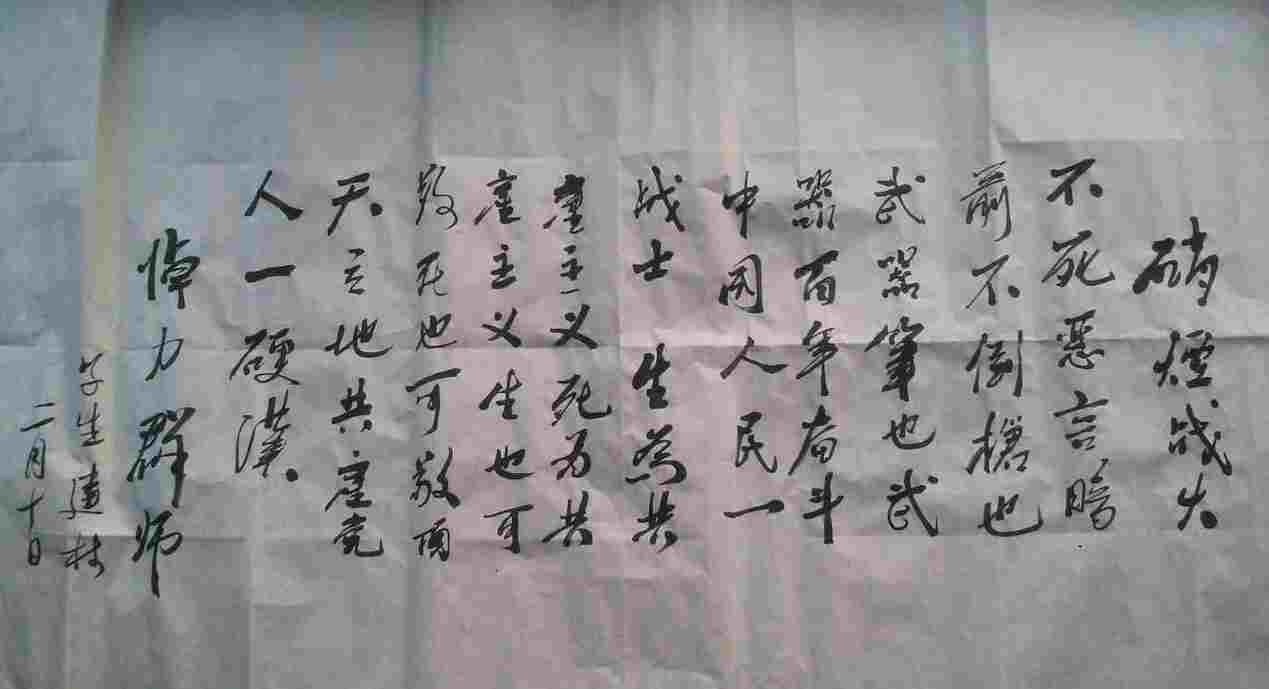 硝煙战火
不死恶言暗
前不倒槍也
武器筆也武
器百年奋斗
中国人民一
战士 生為共
產主义死为共
產主义生也可
敬死也可敬顶
天立地共產党
人一硬漢、
悼力群师
学生建林
二月十日